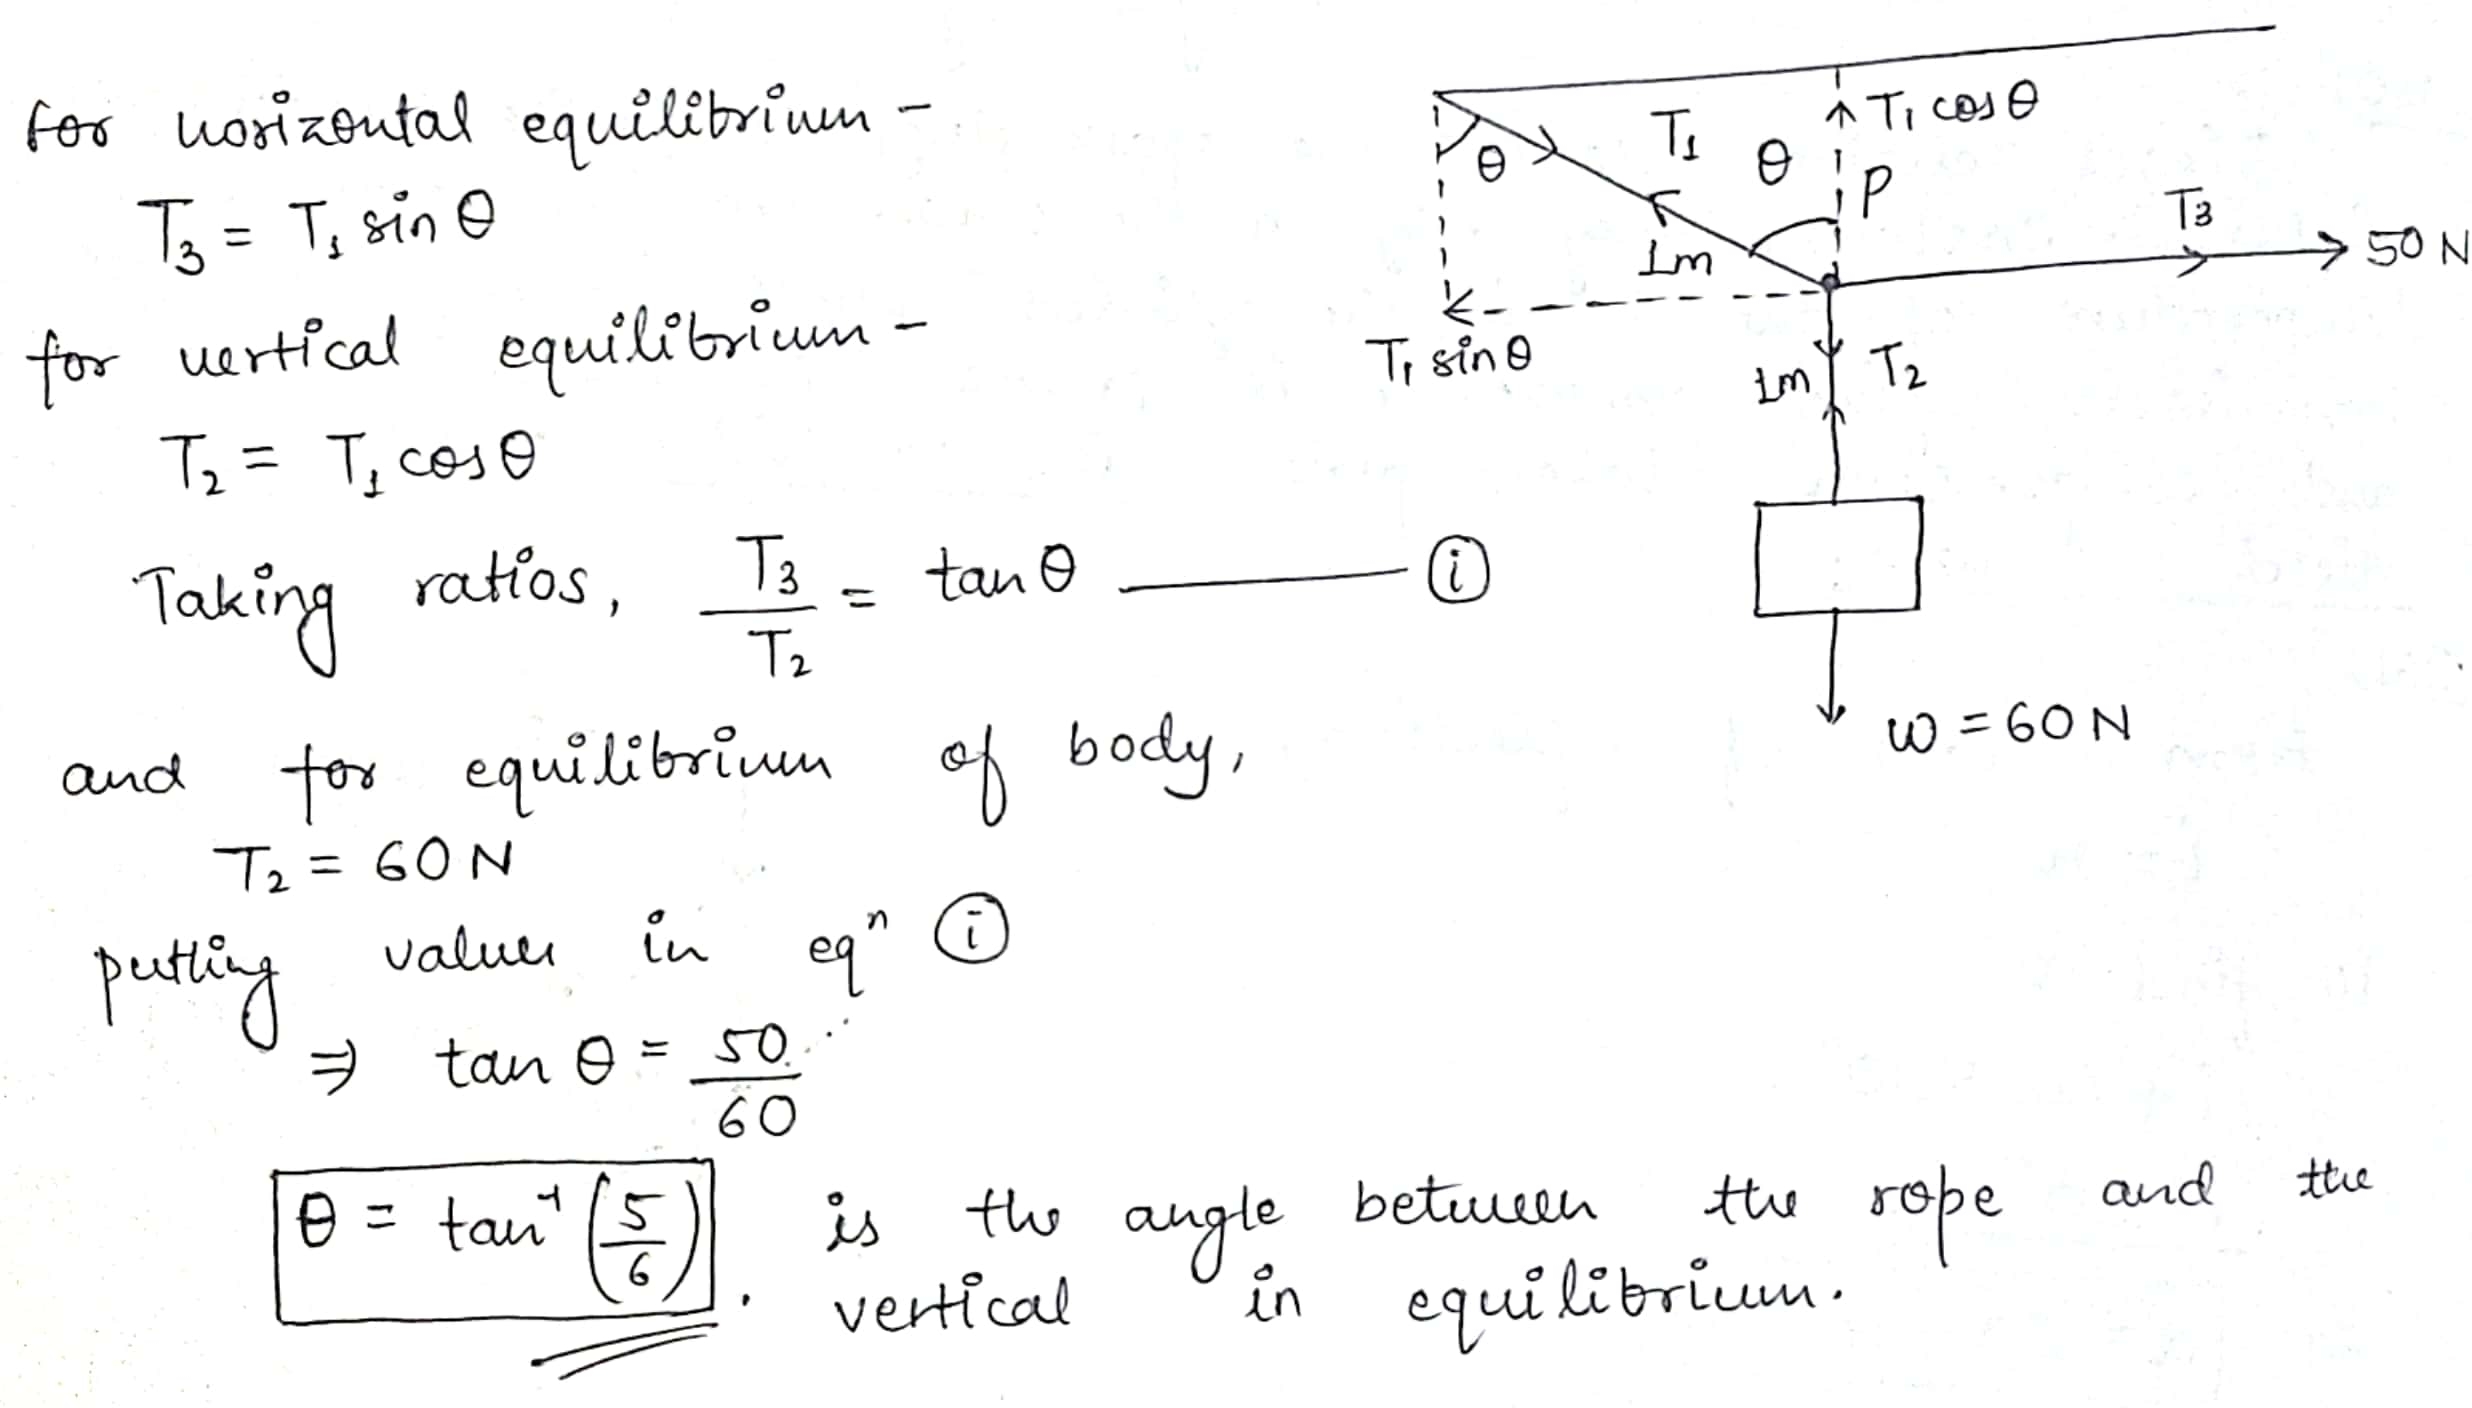 for horizontal equilibrium -
T₃ = T₁ sin θ
for vertical equilibrium -
T₂ = T₁ cos θ
Taking ratios, T₃/T₂ = tan θ ——— (i)
and for equilibrium of body,
T₂ = 60 N
putting values in eqⁿ (i)
⇒ tan θ = 50/60
θ = tan⁻¹ (5/6). is the angle between the rope and the
vertical in equilibrium.
T₁ cos θ
T₁
θ
θ
P
T₃
50 N
1m
T₁ sin θ
1m
T₂
w = 60 N